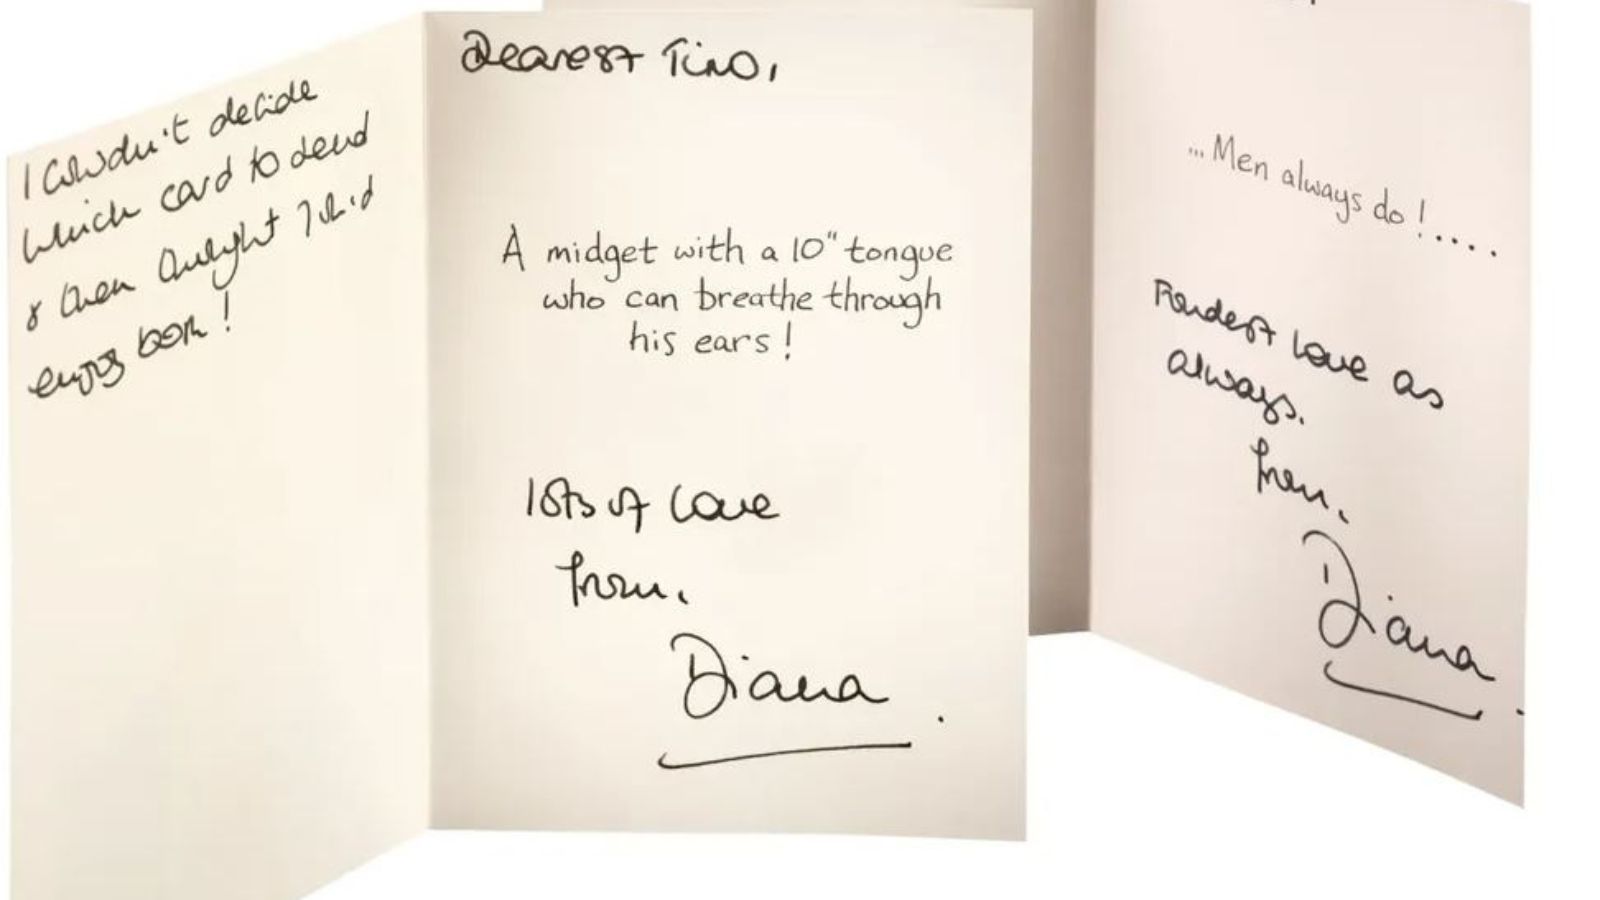 I couldn't decide
which card to send
& then thought I'd
enjoy both!
Dearest Tino,
A midget with a 10" tongue
who can breathe through
his ears!
lots of love
from,
Diana
...Men always do!....
Fondest love as
always.
from,
Diana